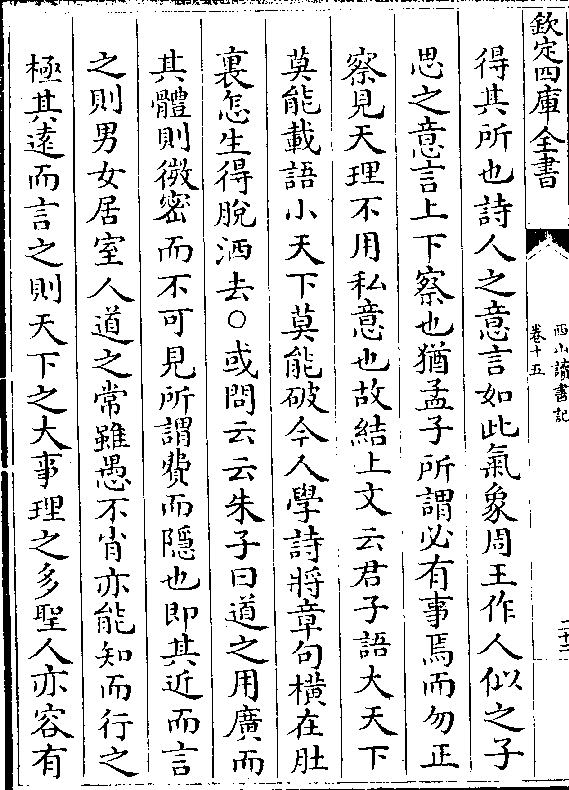 欽定四庫全書
西山讀書記
卷十五
二十二
得其所也詩人之意言如此氣象周王作人似之子
思之意言上下察也猶孟子所謂必有事焉而勿正
察見天理不用私意也故結上文云君子語大天下
莫能載語小天下莫能破今人學詩將章句橫在肚
裏怎生得脫洒去○或問云云朱子曰道之用廣而
其體則微密而不可見所謂費而隱也即其近而言
之則男女居室人道之常雖愚不肖亦能知而行之
極其遠而言之則天下之大事理之多聖人亦容有